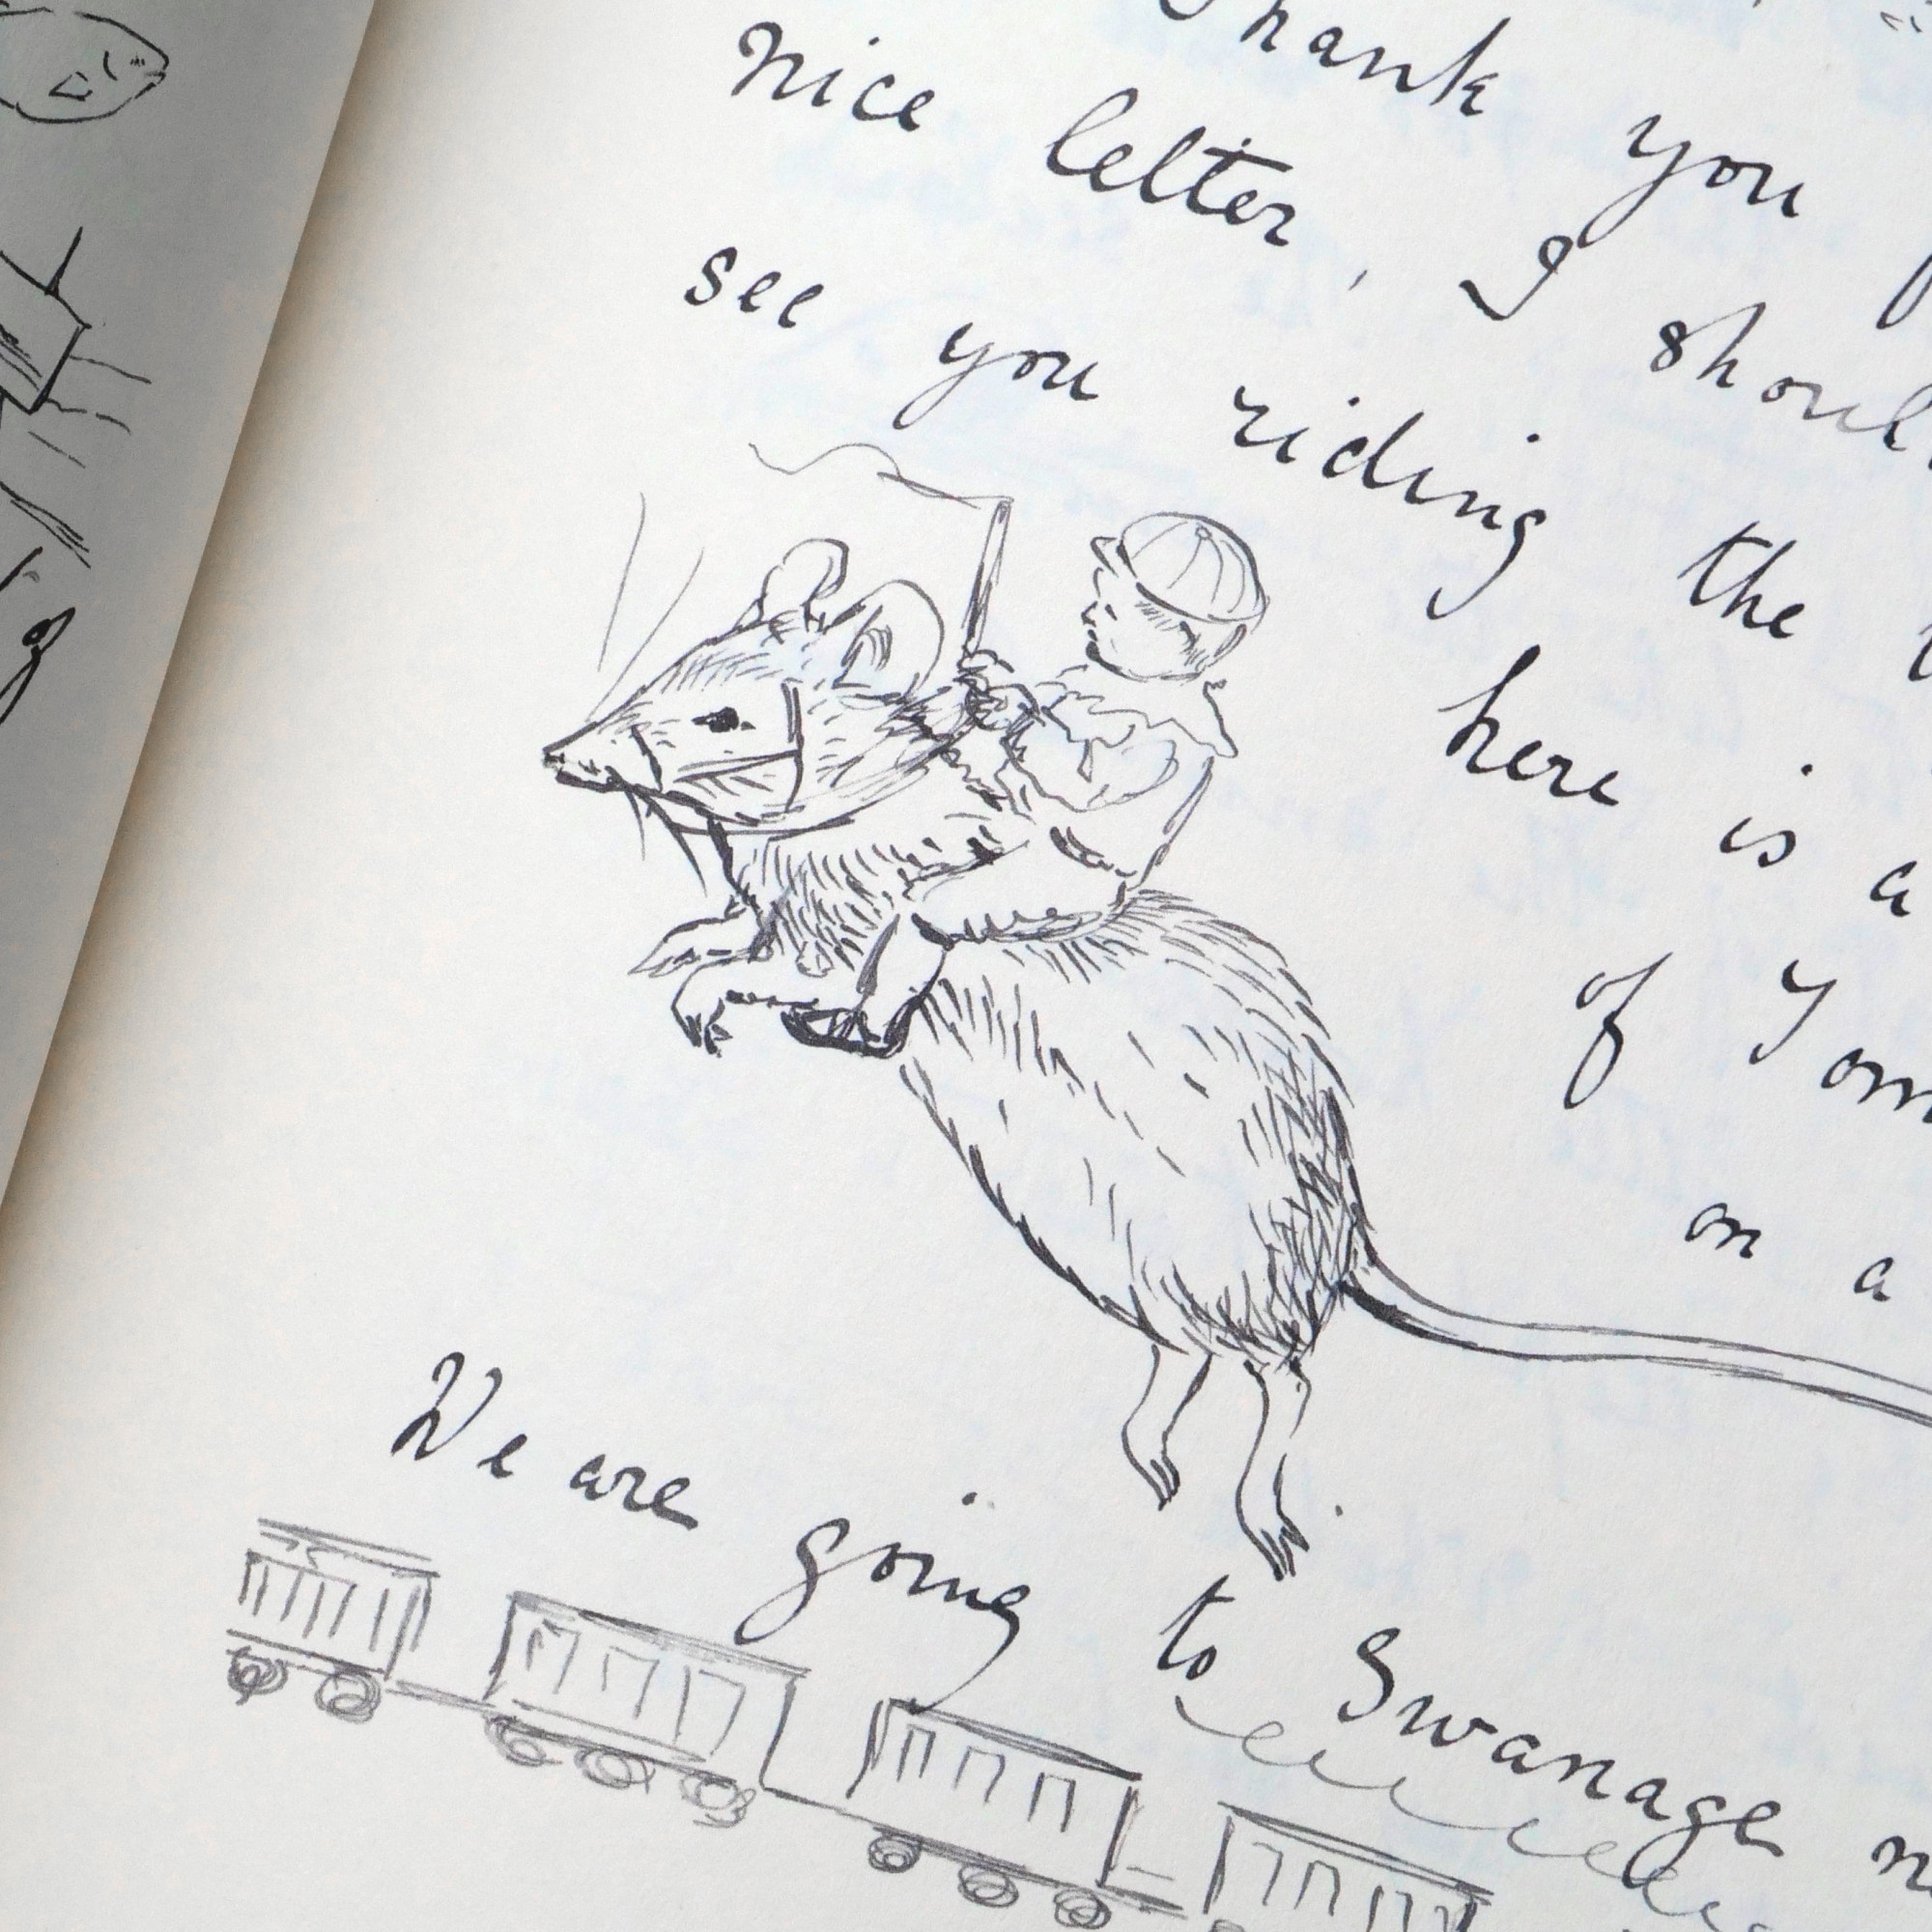 Thank you
nice letter, I should
see you riding the
here is a
of Tom
on a
We are going to Swanage